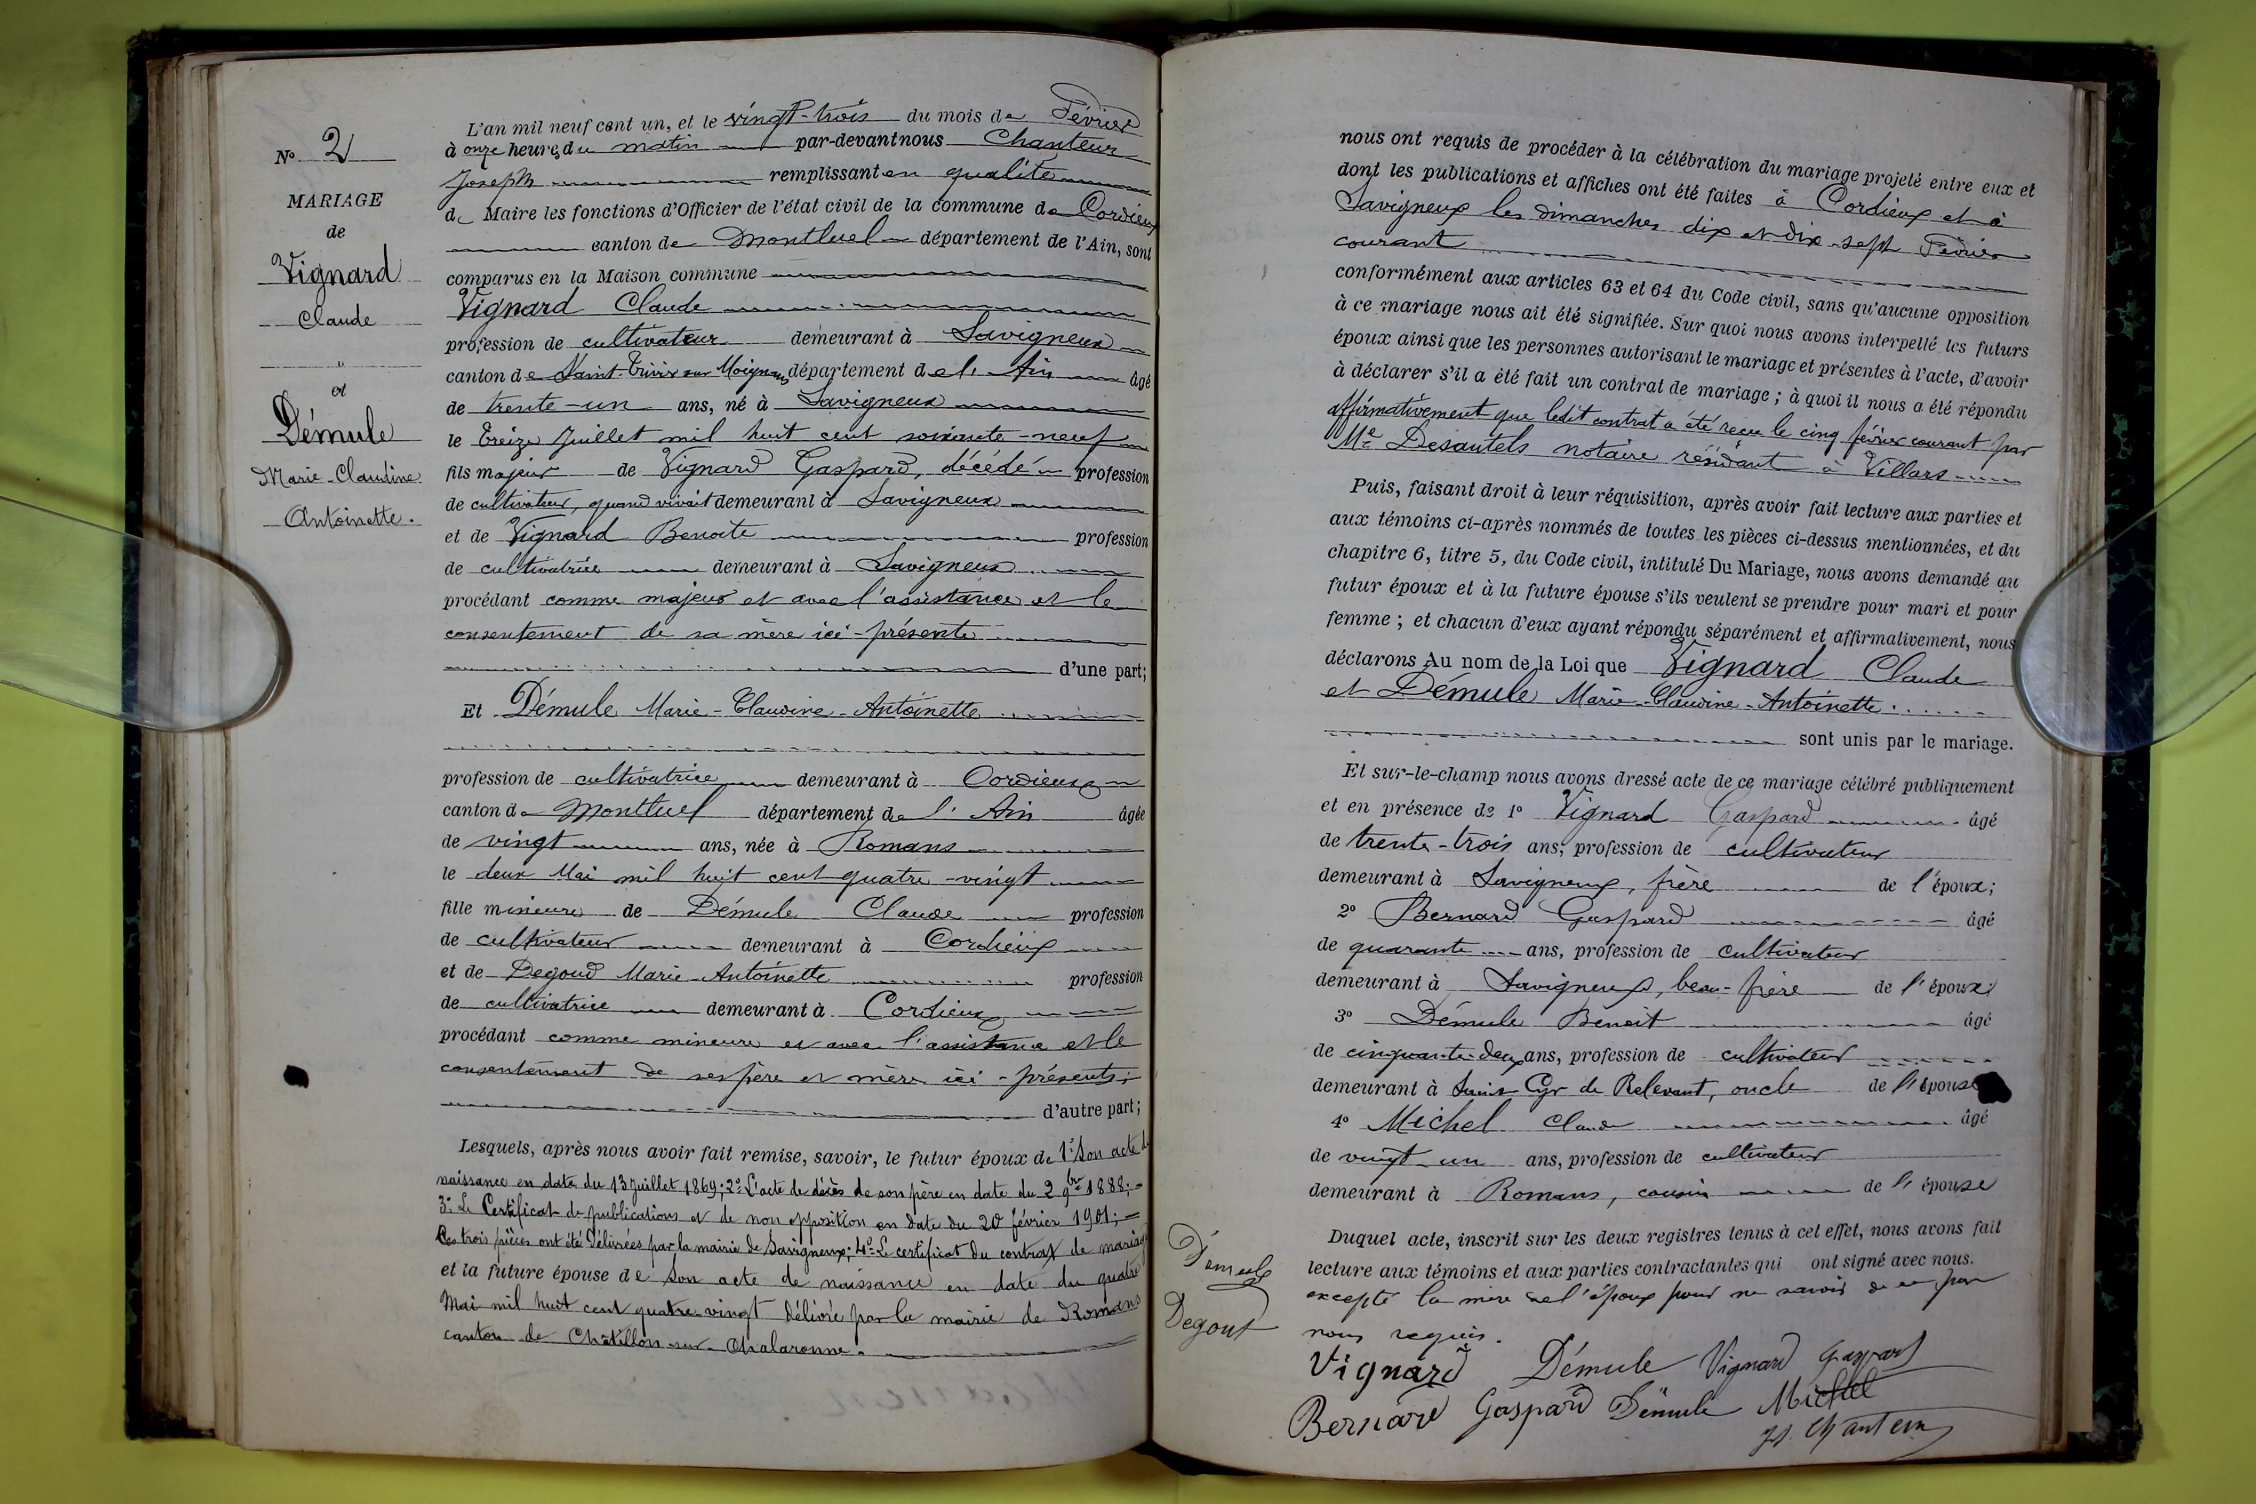 N° 2
MARIAGE
de
Vignard
Claude
"
et
Démule
Marie-Claudine
Antoinette.
L'an mil neuf cent un, et le vingt-trois du mois de Février
à onze heures du matin par-devant nous Chanteur
Joseph remplissant en qualité
de Maire les fonctions d'Officier de l'état civil de la commune de Cordieux
canton de Montluel département de l'Ain, sont
comparus en la Maison commune
Vignard Claude
profession de cultivateur demeurant à Savigneux
canton de Saint-Trivier sur Moignans département de l'Ain âgé
de trente-un ans, né à Savigneux
le treize Juillet mil huit cent soixante-neuf
fils majeur de Vignard Gaspard, décédé profession
de cultivateur, quand vivait demeurant à Savigneux
et de Vignard Benoite profession
de cultivatrice demeurant à Savigneux
procédant comme majeur et avec l'assistance et le
consentement de sa mère ici-présente
d'une part;
Et Démule Marie-Claudine-Antoinette
profession de cultivatrice demeurant à Cordieux
canton de Montluel département de l'Ain âgée
de vingt ans, née à Romans
le deux Mai mil huit cent quatre-vingt
fille mineure de Démule Claude profession
de cultivateur demeurant à Cordieux
et de Degoud Marie-Antoinette profession
de cultivatrice demeurant à Cordieux
procédant comme mineure et avec l'assistance et le
consentement de ses père et mère ici-présents;
d'autre part;
Lesquels, après nous avoir fait remise, savoir, le futur époux de 1° Son acte de
naissance en date du 13 Juillet 1869; 2° L'acte de décès de son père en date du 2 9bre 1888;
3° Le Certificat de publications et de non opposition en date du 20 février 1901;
Ces trois pièces ont été délivrées par la mairie de Savigneux; 4° Le certificat du contrat de mariage
et la future épouse de Son acte de naissance en date du quatre
Mai mil huit cent quatre-vingt délivré par la mairie de Romans
canton de Châtillon-sur-Chalaronne.
nous ont requis de procéder à la célébration du mariage projeté entre eux et
dont les publications et affiches ont été faites à Cordieux et à
Savigneux les dimanches dix et dix-sept Février
courant
conformément aux articles 63 et 64 du Code civil, sans qu'aucune opposition
à ce mariage nous ait été signifiée. Sur quoi nous avons interpellé les futurs
époux ainsi que les personnes autorisant le mariage et présentes à l'acte, d'avoir
à déclarer s'il a été fait un contrat de mariage; à quoi il nous a été répondu
affirmativement que ledit contrat a été reçu le cinq février courant par
Me Desautels notaire résidant à Villars
Puis, faisant droit à leur réquisition, après avoir fait lecture aux parties et
aux témoins ci-après nommés de toutes les pièces ci-dessus mentionnées, et du
chapitre 6, titre 5, du Code civil, intitulé Du Mariage, nous avons demandé au
futur époux et à la future épouse s'ils veulent se prendre pour mari et pour
femme; et chacun d'eux ayant répondu séparément et affirmativement, nous
déclarons Au nom de la Loi que Vignard Claude
et Démule Marie-Claudine-Antoinette
sont unis par le mariage.
Et sur-le-champ nous avons dressé acte de ce mariage célébré publiquement
et en présence de 1° Vignard Gaspard âgé
de trente-trois ans, profession de cultivateur
demeurant à Savigneux, frère de l'époux;
2° Bernard Gaspard âgé
de quarante ans, profession de cultivateur
demeurant à Savigneux, beau-frère de l'époux;
3° Démule Benoit âgé
de cinquante-deux ans, profession de cultivateur
demeurant à Saint Cyr de Relevant, oncle de l'épouse
4° Michel Claude âgé
de vingt-un ans, profession de cultivateur
demeurant à Romans, cousin de l'épouse
Duquel acte, inscrit sur les deux registres tenus à cet effet, nous avons fait
lecture aux témoins et aux parties contractantes qui ont signé avec nous.
excepté la mère de l'époux pour ne savoir de ce par
nous requis.
Démule
Degout
Vignard Démule Vignard Gaspard
Bernard Gaspard Démule Michel
Jh. Chanteur